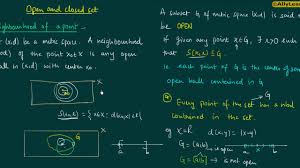 Open and closed set
Neighbourhood of a point -
(X,d) be a metric space. A neighbourhood
of the point x∈X is any open
ball in (X,d) with center x.
X
S(x,ε) = {a∈X : d(a,x)<ε}
X
G
A subset G of metric space (X,d) is said
be OPEN
if given any point x∈G, ∃ ε>0 such
that S(x,ε) ⊆ G.
i.e. each point of G is the center of some
open ball contained in G
Every point of the set has a nbd
contained in the set.
eg X=ℝ d(x,y)= |x-y|
G = (a,b) is open
G = [a,b) → is not open
a b